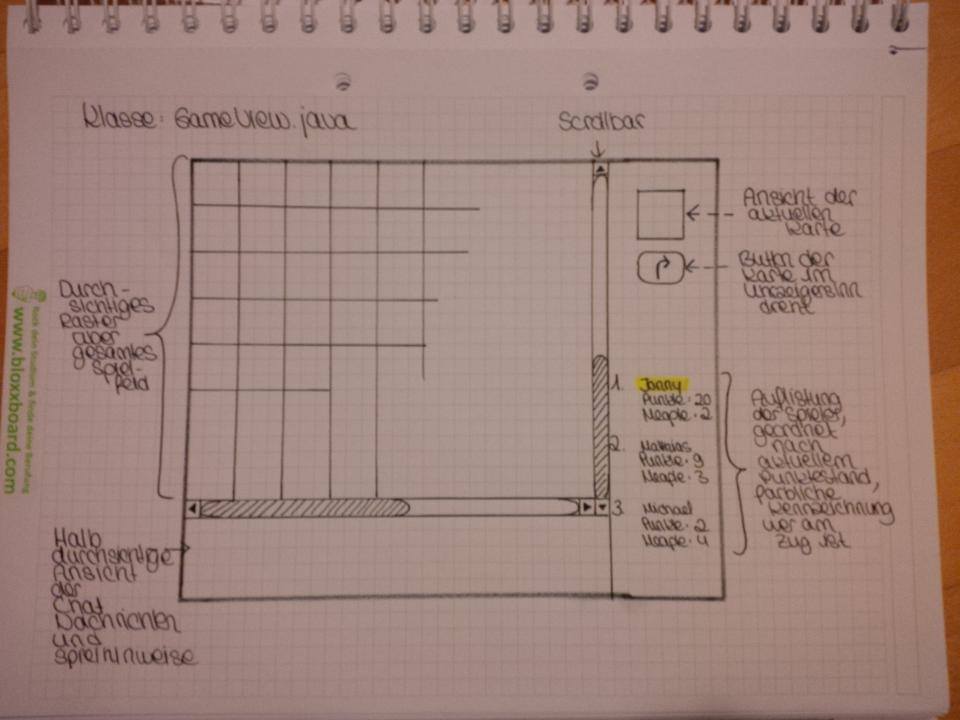 Klasse: GameView.java
Scrollbar
Ansicht der
aktuellen
Karte
Button der
Karte im
Uhrzeigersinn
dreht
Durch-
sichtiges
Raster
über
gesamtes
Spiel-
feld
1. Jonny
Punkte: 20
Meaple: 2
2. Mathias
Punkte: 9
Meaple: 3
3. Michael
Punkte: 2
Meaple: 4
Auflistung
der Spieler,
geordnet
nach
aktuellem
Punktestand,
farbliche
Kennzeichnung
wer am
Zug ist
Halb
durchsichtige
Ansicht
der
Chat
Nachrichten
und
Spielhinweise
Rock dein Studium & finde deine Berufung
www.bloxxboard.com